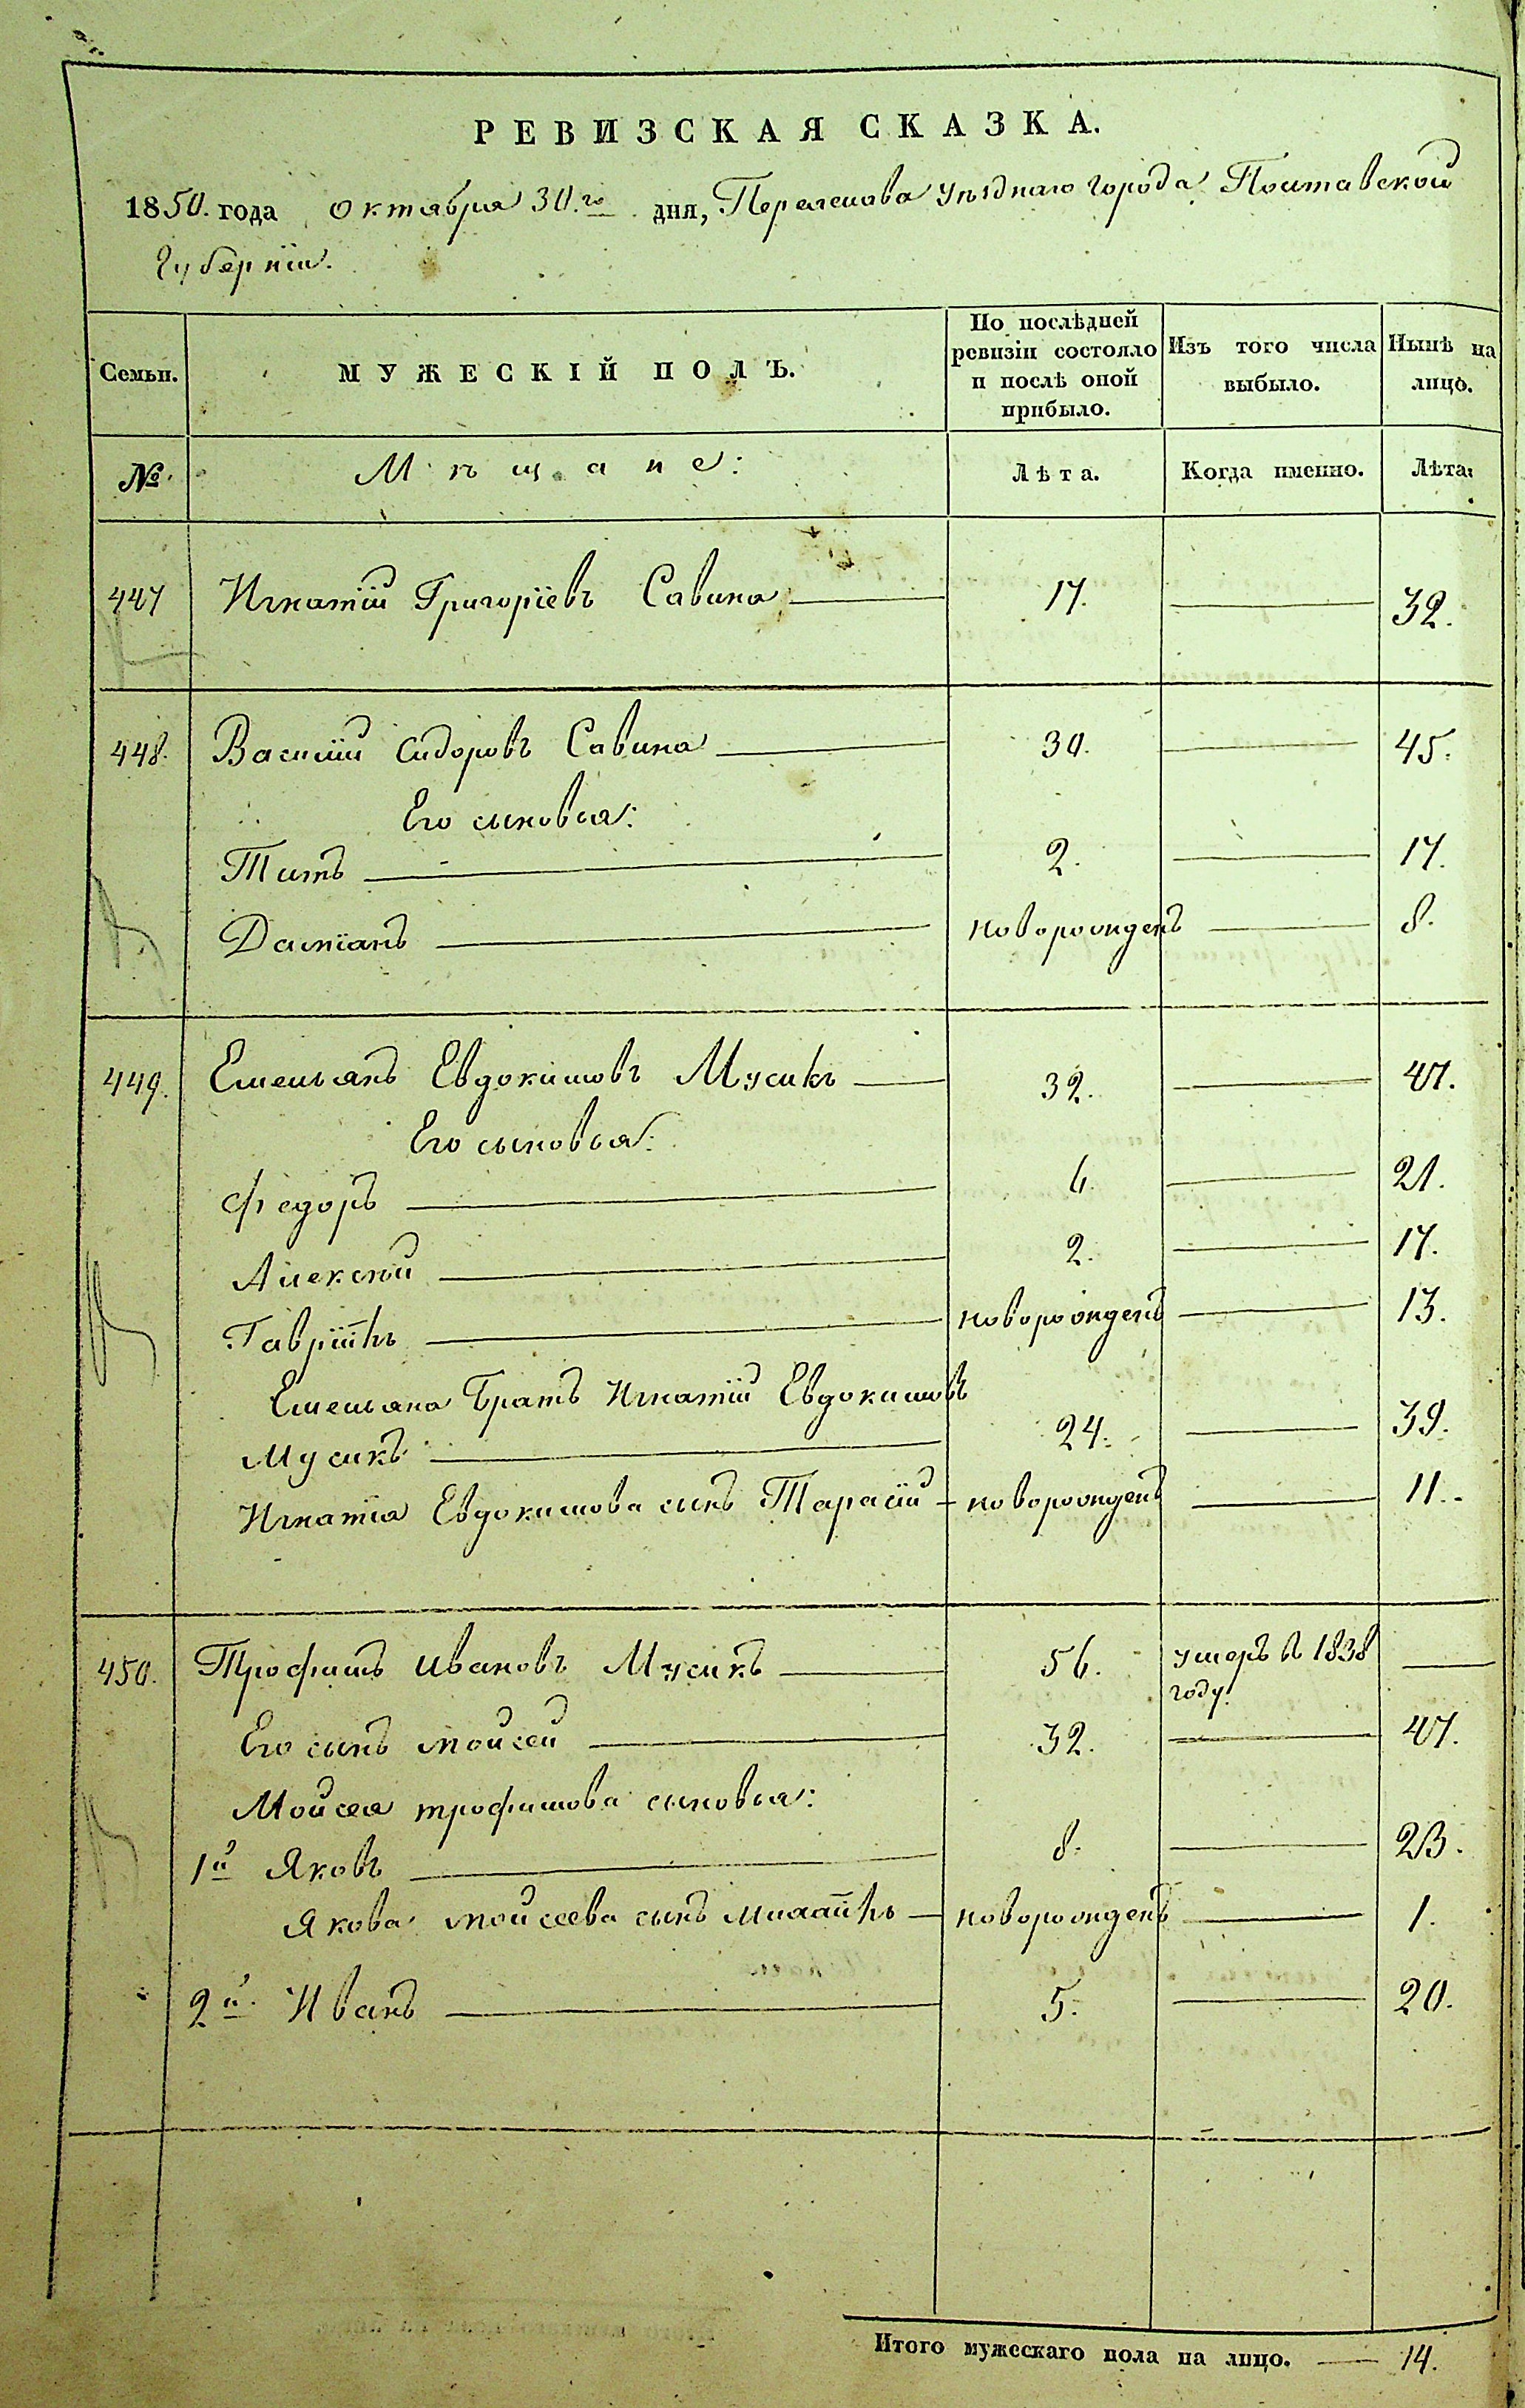 РЕВИЗСКАЯ СКАЗКА.
1850. года Октября 30.го дня, Переяслова Уѣзднаго города Полтавской
Губерніи.
Семьи. МУЖЕСКІЙ ПОЛЪ. По послѣдней ревизіи состояло и послѣ оной прибыло. Изъ того числа выбыло. Нынѣ на лицо.
№. Мѣщане: Лѣта. Когда именно. Лѣта.
447 Игнатій Григоріевъ Савина 17. 32.
448. Василій Сидоровъ Савина 30. 45.
Его сыновья:
Титъ 2. 17.
Даміанъ новорожденъ 8.
449. Емельянъ Евдокимовъ Мусикъ 32. 47.
Его сыновья:
Федоръ 6. 21.
Алексѣй 2. 17.
Гавріилъ новорожденъ 13.
Емельяна Братъ Игнатій Евдокимовъ
Мусикъ 24. 39.
Игнатія Евдокимова сынъ Тарасій новорожденъ 11.
450. Трофимъ Ивановъ Мусикъ 56. умеръ въ 1838
году.
Его сынъ Мойсей 32. 47.
Мойсея трофимова сыновья:
1й Яковъ 8. 23.
Якова мойсеева сынъ михаилъ новорожденъ 1.
2й Иванъ 5. 20.
Итого мужескаго пола на лицо. 14.